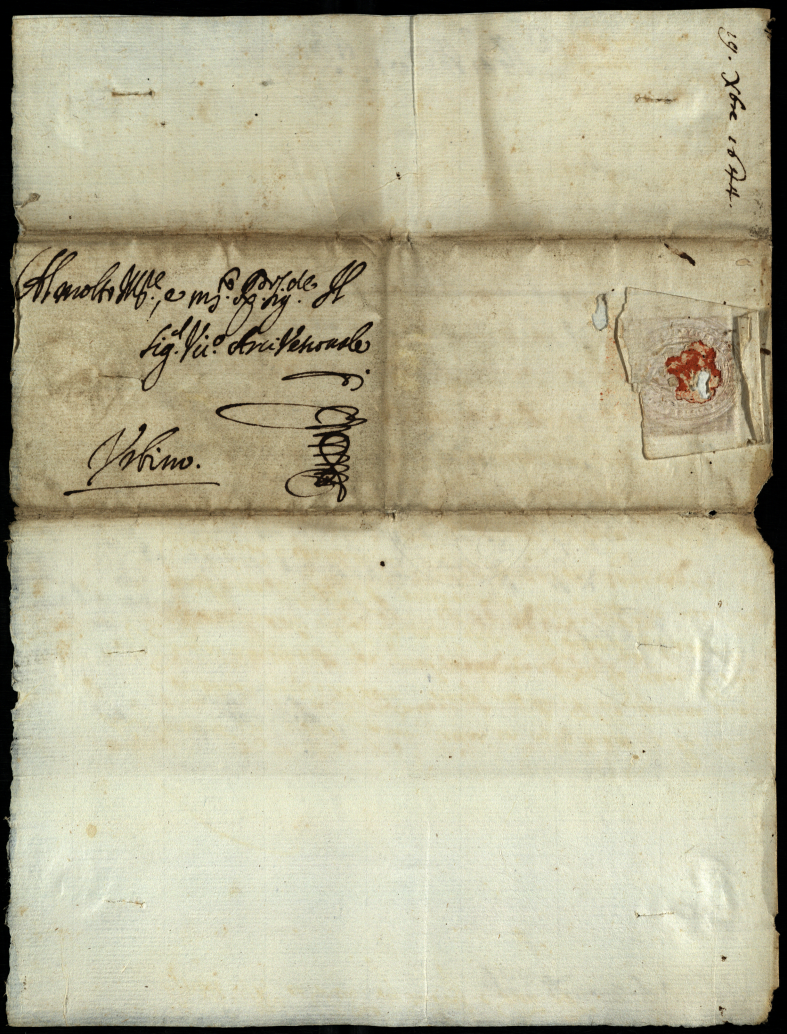 19. Xbre 1644.
Al molto Ill.re, e m.to R.do Sig. Il
Sig.r Vic.o Arcivescovale
Urbino.